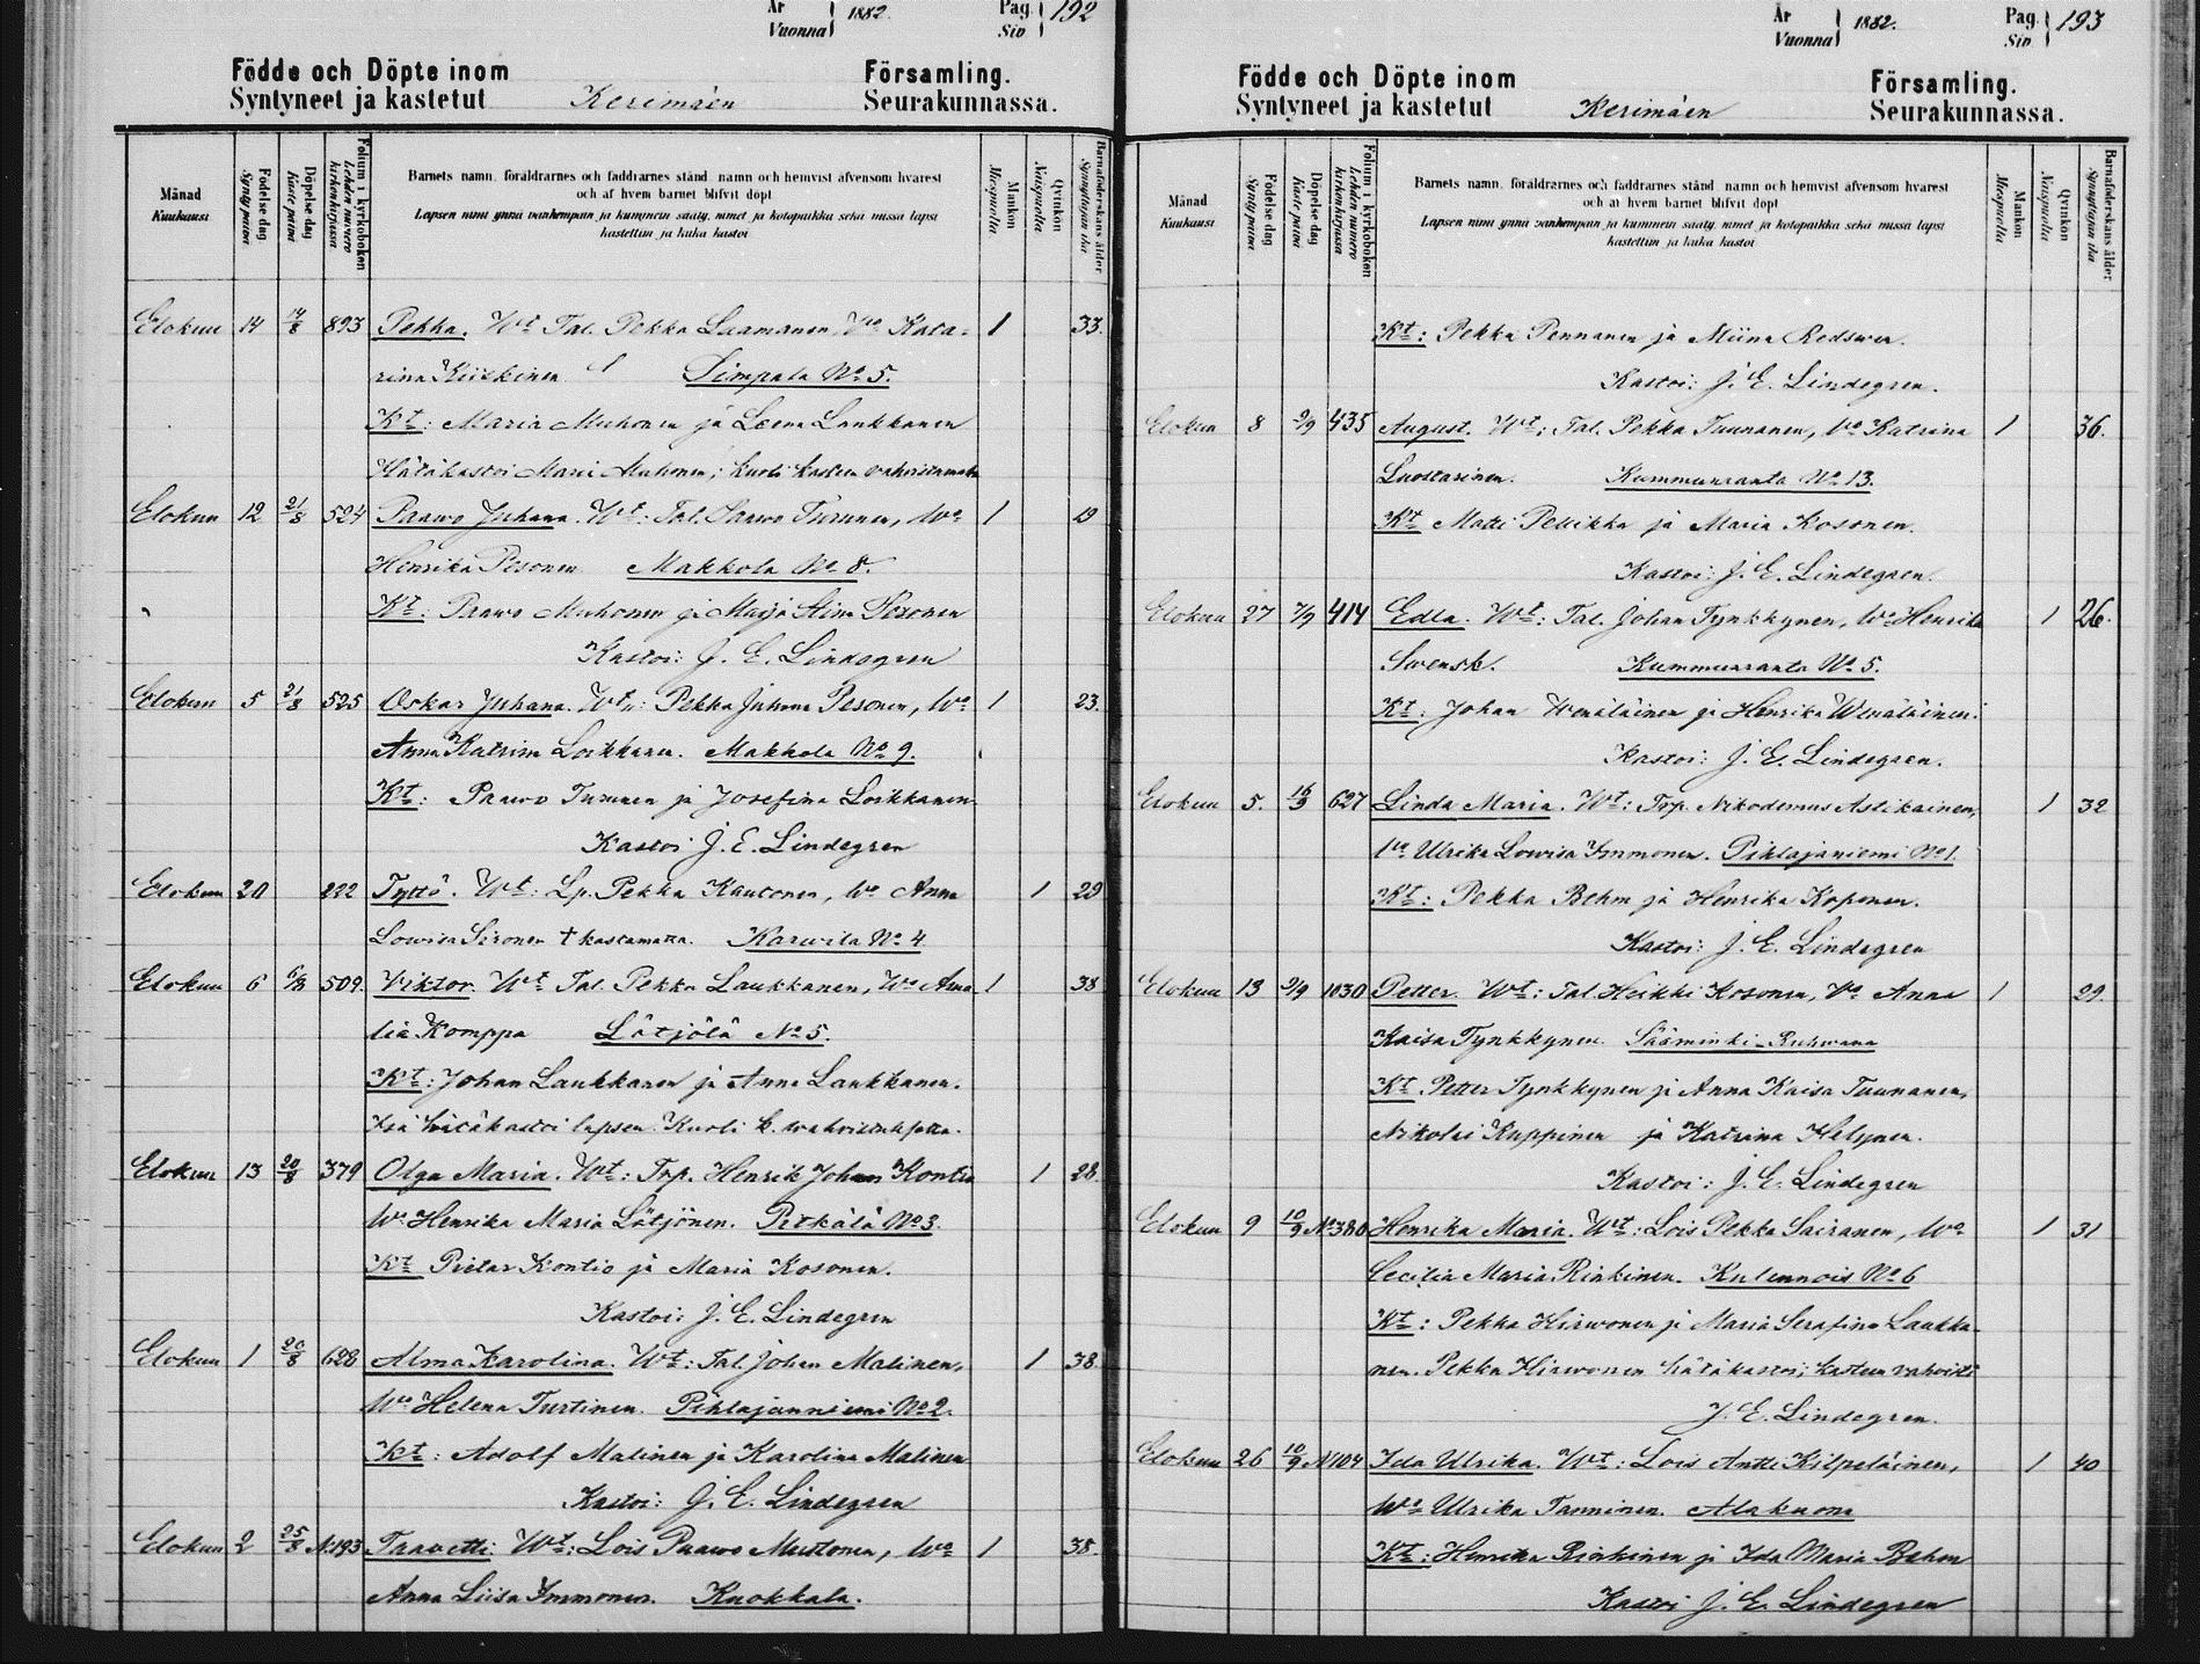 År
Vuonna
1882.
Pag.
Siv
192
Födde och Döpte inom
Syntyneet ja kastetut
Kerimäen
Församling.
Seurakunnassa.
Månad
Kuukausi
Födelse dag
Synty päivä
Döpelse dag
Kaste päivä
Folium i kyrkoboken
Lehden numero
kirkonkirjassa
Barnets namn, föräldrarnes och faddrarnes stånd, namn och hemvist äfvensom hvarest
och af hvem barnet blifvit döpt
Lapsen nimi ynnä vanhempain ja kummein sääty, nimet ja kotopaikka sekä missä lapsi
kastettiin ja kuka kastoi
Mankön
Miespuolta
Qvinkön
Naispuolta
Barnaföderskans ålder
Synnyttäjän ikä
Elokuu 14 14/8 893 Pekka. Wt Tal. Pekka Laamanen, Wo Kata- 1 33.
rina Kiiskinen Simpala No 5.
Kt: Maria Muhonen ja Leena Laukkanen
Hätäkastoi Maria Muhonen; kuoli kasteen vahvistamatta
Elokuu 12 21/8 524 Paawo Juhana. Wt: Tal. Paawo Turunen, Wo 1 19
Henrika Pesonen Makkola No 8.
Kt: Paawo Muhonen ja Maija Stina Pesonen
Kastoi: J. E. Lindegren
Elokuu 5 21/8 525 Oskar Juhana. Wt: Pekka Juhana Pesonen, Wo 1 23.
Anna Katrina Loikkanen. Makkola No 9.
Kt: Paawo Turunen ja Josefina Loikkanen
Kastoi J. E. Lindegren
Elokuu 20 222 Tyttö. Wt: Lp. Pekka Kautonen, Wo Anna 1 29
Lowisa Sironen † kastamatta. Karwila No 4
Elokuu 6 6/8 509. Viktor. Wt Tal. Pekka Laukkanen, Wo Ama- 1 38
lia Komppa Lätjölä No 5.
Kt: Johan Laukkanen ja Anna Laukkanen.
Isä hätäkastoi lapsen. Kuoli k.
Elokuu 13 20/8 379 Olga Maria. Wt: Trp. Henrik Johan Kontio 1 28.
Wo Henrika Maria Lätjönen. Pitkälä No 3.
Kt Pietar Kontio ja Maria Kosonen.
Kastoi: J. E. Lindegren
Elokuu 1 20/8 628 Alma Karolina. Wt: Tal. Johan Malinen, 1 38.
Wo Helena Turtinen. Pihlajanniemi No 2.
Kt: Adolf Malinen ja Karolina Malinen
Kastoi: J. E. Lindegren
Elokuu 2 25/8 N:193 Taavetti Wt: Lois Paawo Mustonen, Wo 1 38.
Anna Liisa Immonen. Kuokkala.
År
Vuonna
1882.
Pag.
Siv
193
Födde och Döpte inom
Syntyneet ja kastetut
Kerimäen
Församling.
Seurakunnassa.
Månad
Kuukausi
Födelse dag
Synty päivä
Döpelse dag
Kaste päivä
Folium i kyrkoboken
Lehden numero
kirkonkirjassa
Barnets namn, föräldrarnes och faddrarnes stånd, namn och hemvist äfvensom hvarest
och af hvem barnet blifvit döpt
Lapsen nimi ynnä vanhempain ja kummein sääty, nimet ja kotopaikka sekä missä lapsi
kastettiin ja kuka kastoi
Mankön
Miespuolta
Qvinkön
Naispuolta
Barnaföderskans ålder
Synnyttäjän ikä
Kt: Pekka Pennanen ja Miina Redswen.
Kastoi: J. E. Lindegren.
Elokuu 8 2/9 435 August. Wt: Tal. Pekka Tuunanen, Wo Katrina 1 36.
Luostarinen. Kummunranta No 13.
Kt Matti Pellikka ja Maria Kosonen.
Kastoi: J. E. Lindegren.
Elokuu 27 7/9 414 Edla. Wt: Tal. Johan Tynkkynen, Wo Henrika 1 26.
Swensk. Kummunranta No 5.
Kt: Johan Wenäläinen ja Henrika Wenäläinen.
Kastoi: J. E. Lindegren.
Elokuu 5. 16/9 627 Linda Maria. Wt: Trp. Nikodemus Astikainen, 1 32
Wo Ulrika Lowisa Immonen. Pihlajaniemi No 1.
Kt: Pekka Behm ja Henrika Koponen.
Kastoi: J. E. Lindegren
Elokuu 13 2/9 1030 Petter. Wt: Tal. Heikki Kosonen, Wo Anna 1 29.
Kaisa Tynkkynen. Sääminki-Ruhwana
Kt. Petter Tynkkynen ja Anna Kaisa Tuunanen,
Nikolai Ruppinen ja Katrina Helynen.
Kastoi: J. E. Lindegren
Elokuu 9 10/9 No 380 Henrika Maria. Wt: Lois Pekka Sairanen, Wo 1 31
Cecilia Maria Rinkinen. Kulennois No 6
Kt: Pekka Hirwonen ja Maria Serafina Laukka-
nen. Pekka Hirwonen hätäkastoi; kasteen vahvisti
J. E. Lindegren.
Elokuu 26 10/9 N 104 Ida Ulrika. Wt: Lois Antti Kilpeläinen, 1 40
Wo Ulrika Tanninen. Alakuona
Kt: Henrika Rinkinen ja Ida Maria Behm
Kastoi J. E. Lindegren